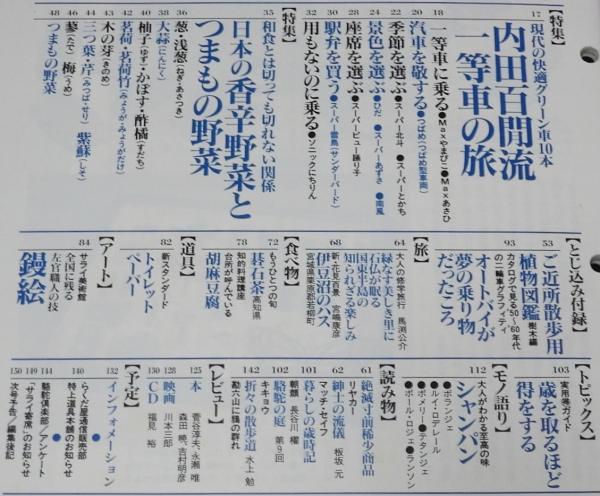 【特集】
17 現代の快適グリーン車10本
内田百閒流
一等車の旅
18 一等車に乗る●Maxやまびこ●Maxあさひ
20 汽車を敬する●つばめ(つばめ型車両)
22 季節を選ぶ●スーパー北斗 ●スーパーとかち
24 景色を選ぶ●ひだ ●スーパーあずさ ●南風
28 座席を選ぶ●スーパービュー踊り子
30 駅弁を買う●スーパー雷鳥(サンダーバード)
32 用もないのに乗る●ソニックにちりん
【特集】
35 和食とは切っても切れない関係
日本の香辛野菜と
つまもの野菜
36 葱・浅葱(ねぎ・あさつき)
38 大蒜(にんにく)
40 柚子(ゆず)・かぼす・酢橘(すだち)
42 茗荷・茗荷竹(みょうが・みょうがだけ)
43 木の芽(きのめ)
44 三つ葉・芹(みつば・せり) 紫蘇(しそ)
46 蓼(たで) 梅(うめ)
48 つまもの野菜
【とじ込み付録】
53 ご近所散歩用
植物図鑑 樹木編
93 カタログで見る'50〜'60年代
の二輪車グラフィティ
オートバイが
夢の乗り物
だったころ
【旅】
64 大人の修学旅行 馬渕公介
緑なす美しき里に
石仏が眠る
国東半島の
知られざる楽しみ
68 新・花見百景 宮嶋康彦
伊豆沼のハス
宮城県栗原郡若柳町
【食べ物】
72 もうひとつの旬
碁石茶 高知県
78 知的料理講座
台所が呼んでいる
胡麻豆腐
【道具】
82 新スタンダード
トイレット
ペーパー
【アート】
84 サライ美術館
全国に残る
左官職人の技
鏝絵
【トピックス】
103 実用✕ガイド
歳を取るほど
得をする
【モノ語り】
112 大人がわかる至高の味
シャンパン
●ボランジェ
●ルイ・ロデレール
●ポメリー●テタンジェ
●ポール・ロジェ●ランソン
【読み物】
61 絶滅寸前稀少商品
リヤカー
62 紳士の流儀 板坂 元
マッチ・セイフ
101 暮らしの歳時記
朝顔 長谷川 櫂
102 駱駝の庭 第9回
キキョウ
142 折々の散歩道 水上 勉
勘六山に鴉の群れ
【レビュー】
125 本 菅谷淳夫・永瀬 唯
森田 暁、吉村明彦
128 映画 川本三郎
130 CD 福見 裕
【予定】
132 インフォメーション
140 らくだ屋通信販売部
特上道具本舗のお知らせ
144 駱駝倶楽部／アンケート
149 「サライ寄席」のお知らせ
150 次号予告／編集後記